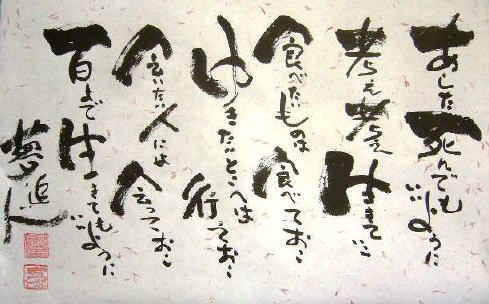 あした死んでもいいように
考え考え生きてこ
食べたいものは食べておこ
ゆきたいとこへは行っておこ
会いたい人には会っておこ
百まで生きてもいいように
夢追人